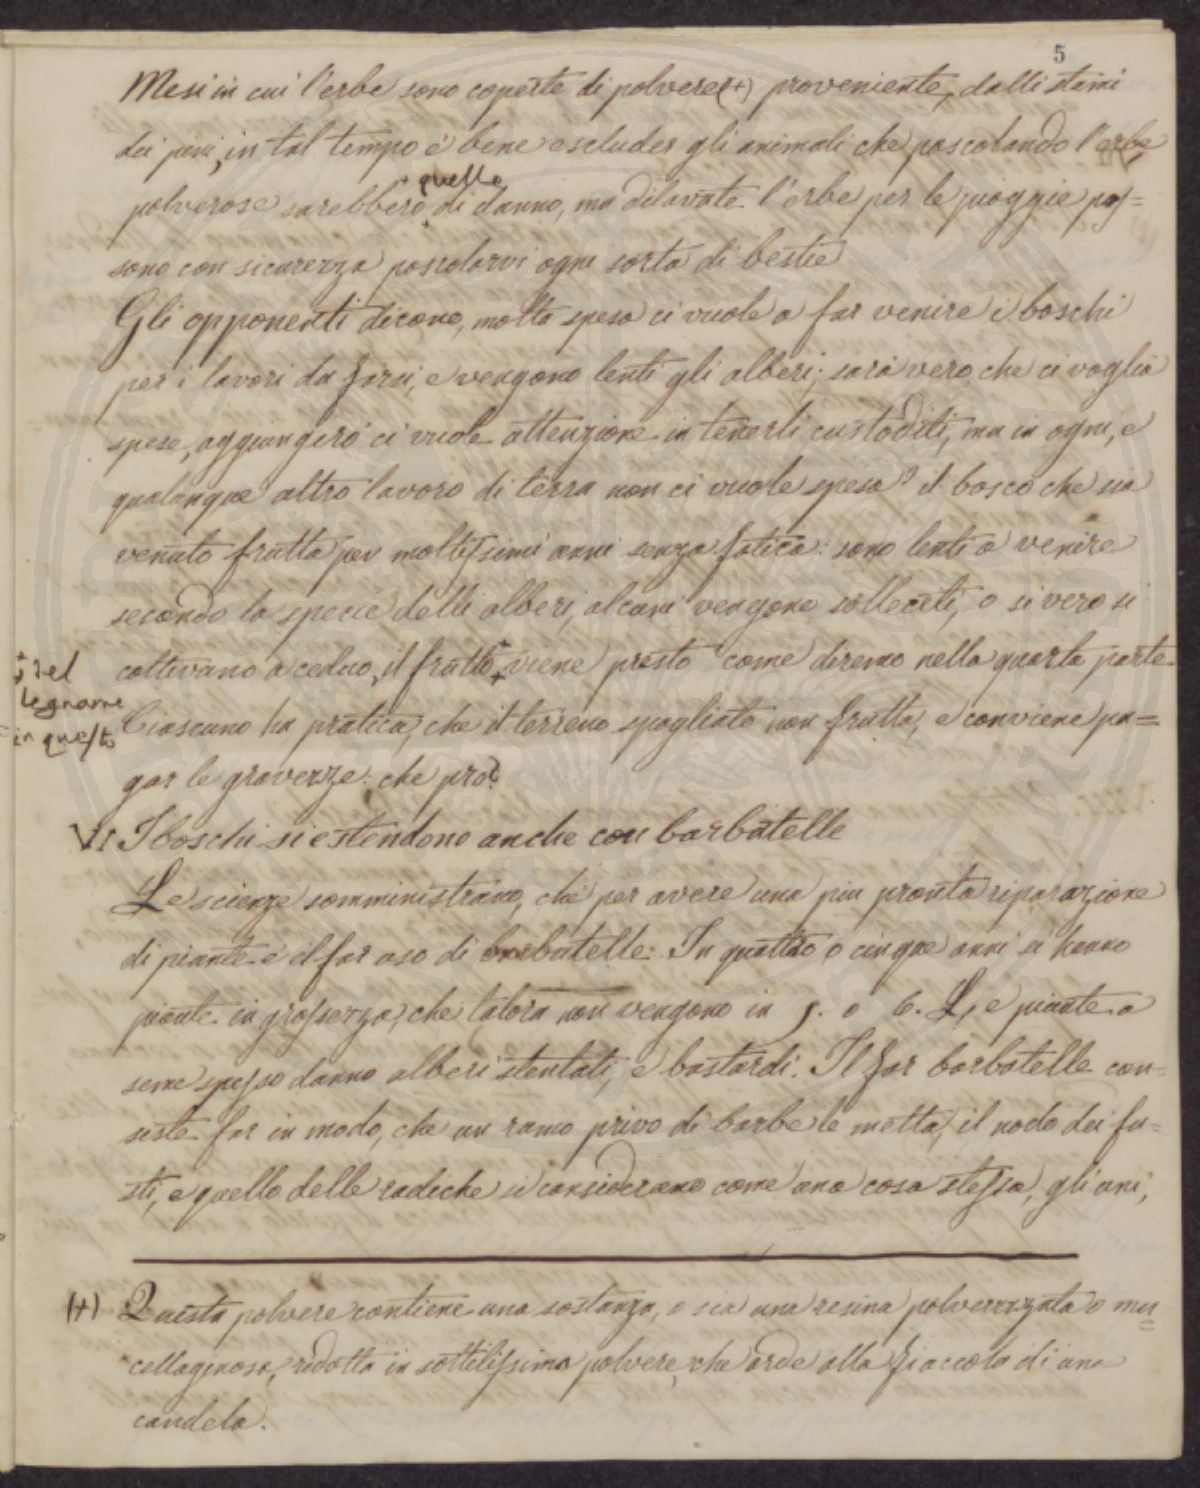 5
Mesi in cui l'erbe sono coperte di polvere (+) proveniente, dalli stami
dei pini, in tal tempo è bene escluder gli animali che pascolando l'erbe
quelle
polverose sarebbero di danno, ma dilavate l'erbe per le pioggie pos=
sono con sicurezza pascolarvi ogni sorta di bestie
Gli opponenti dicono, molta spesa ci vuole a far venire i boschi
per i lavori da farsi, e vengono lenti gli alberi; sarà vero che ci voglia
spese, aggiungerò ci vuole attenzione in tenerli custoditi, ma in ogni, e
qualunque altro lavoro di terra non ci vuole spesa? il bosco che sia
venuto frutta per moltissimi anni senza fatica: sono lenti a venire
secondo la specie delli alberi, alcuni vengono solleciti, o si vero si
coltivano a ceduo, il frutto + viene presto come diremo nella quarta parte
+ del
legname
Ciascuno ha pratica, che il terreno spogliato non frutta, e conviene pa=
= in questo
gar le gravezze: che pro?
VI I boschi si estendono anche con barbatelle
Le scienze somministrano, che per avere una più pronta riparazione
di piante è il far uso di barbatelle. In quattro o cinque anni si hanno
piante in grossezza, che talora non vengono in 5. o 6. L, e piante a
seme spesso danno alberi stentati, e bastardi. Il far barbatelle con=
siste far in modo, che un ramo privo di barbe le metta, il nodo dei fu=
sti, e quello delle radiche si considerano come una cosa stessa, gli uni,
(+) Questa polvere contiene una sostanza, o sia una resina polverizzata o mu
cellaginosa, ridotta in sottilissima polvere, che arde alla fiaccola di una
candela.